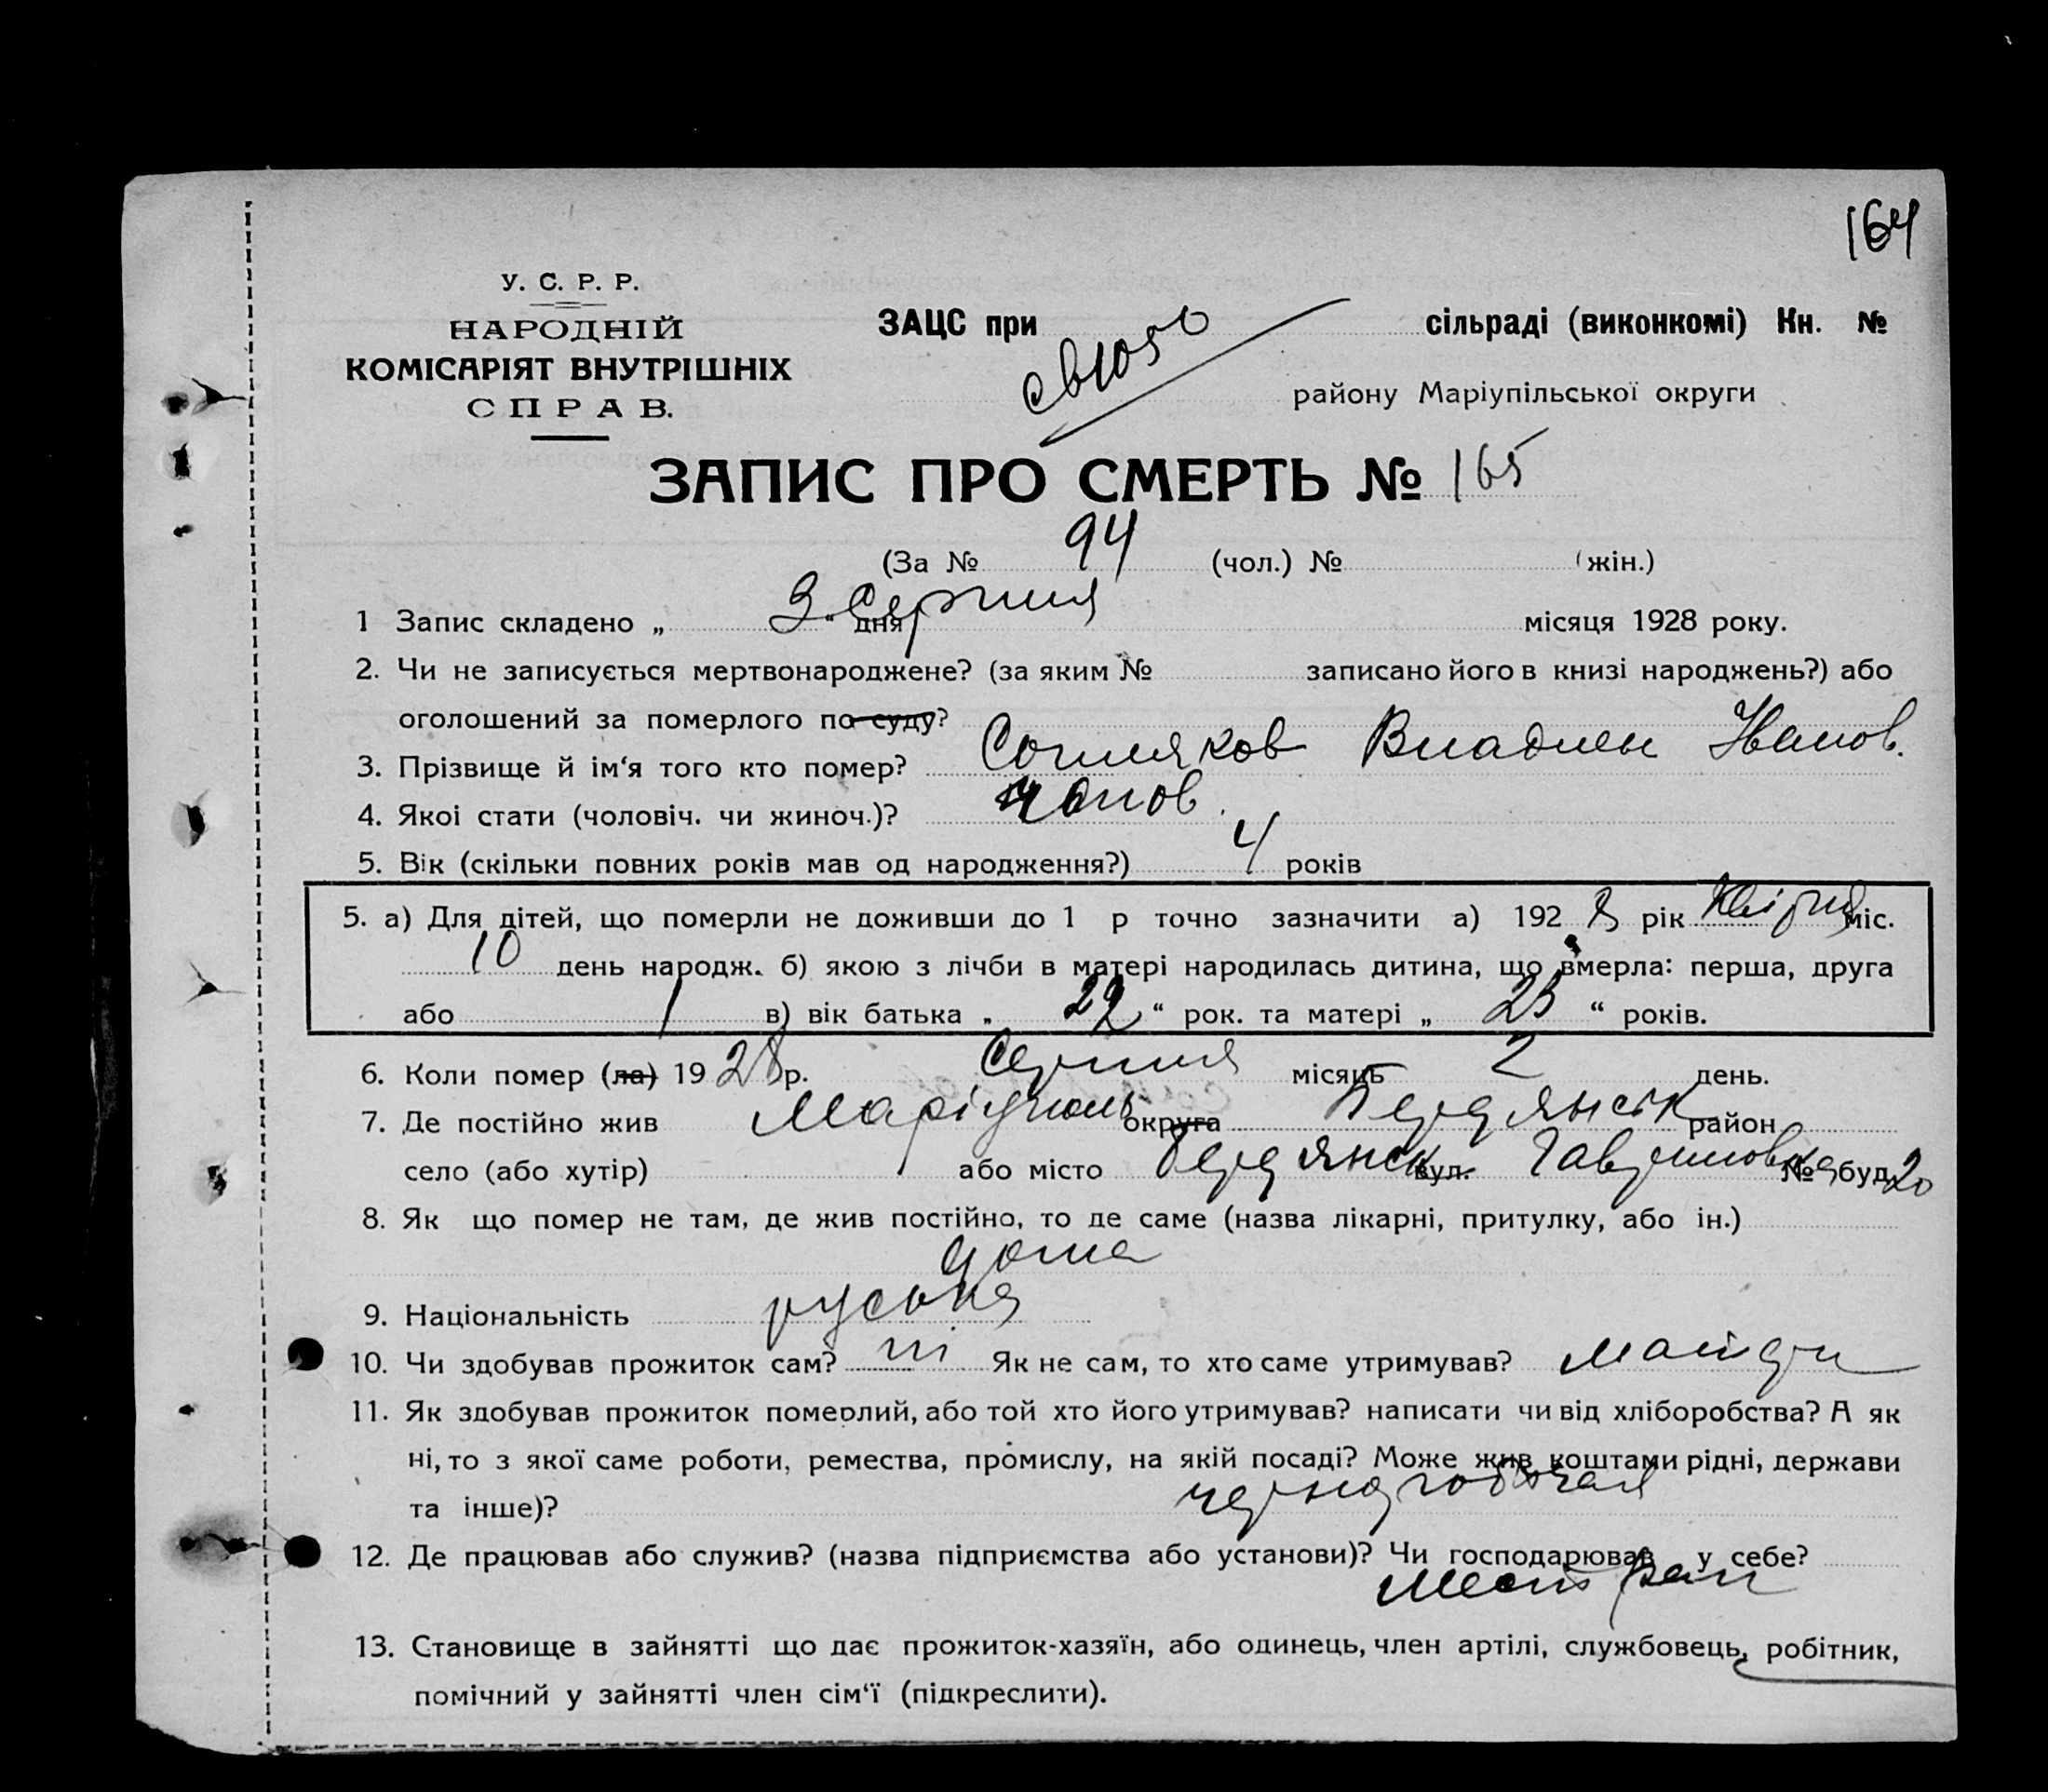 164
У. С. Р. Р.
НАРОДНІЙ
КОМІСАРІЯТ ВНУТРІШНІХ
СПРАВ.
ЗАЦС при сільраді (виконкомі) Кн. №
району Маріупільської округи
ЗАПИС ПРО СМЕРТЬ № 165
(За № 94 (чол.) № (жін.)
1 Запис складено „ 3 “ дня Серпня місяця 1928 року.
2. Чи не записується мертвонароджене? (за яким № записано його в книзі народжень?) або
оголошений за померлого по суду?
3. Прізвище й ім‘я того кто помер? Владлен Иванов.
4. Якоі стати (чоловіч. чи жиноч.)? чолов.
5. Вік (скільки повних років мав од народження?) 4 років
5. а) Для дітей, що померли не доживши до 1 р точно зазначити а) 192 8 рік міс.
10 день народж. б) якою з лічби в матері народилась дитина, що вмерла: перша, друга
або 1 в) вік батька „ 22 “ рок. та матері „ “ років.
6. Коли помер (ла) 19 28 р. Серпня місяць 2 день.
7. Де постійно жив Маріуполь округа Бердянськ район
село (або хутір) або місто Бердянськ вул. № буд. 20
8. Як що помер не там, де жив постійно, то де саме (назва лікарні, притулку, або ін.)
дома
9. Національність руська
10. Чи здобував прожиток сам? ні Як не сам, то хто саме утримував?
11. Як здобував прожиток померлий, або той хто його утримував? написати чи від хліборобства? А як
ні, то з якої саме роботи, ремества, промислу, на якій посаді? Може жив коштами рідні, держави
та інше)? чернорабочая
12. Де працював або служив? (назва підприємства або установи)? Чи господарював у себе?
13. Становище в зайнятті що дає прожиток-хазяїн, або одинець, член артілі, службовець, робітник,
помічний у зайнятті член сім‘ї (підкреслити).